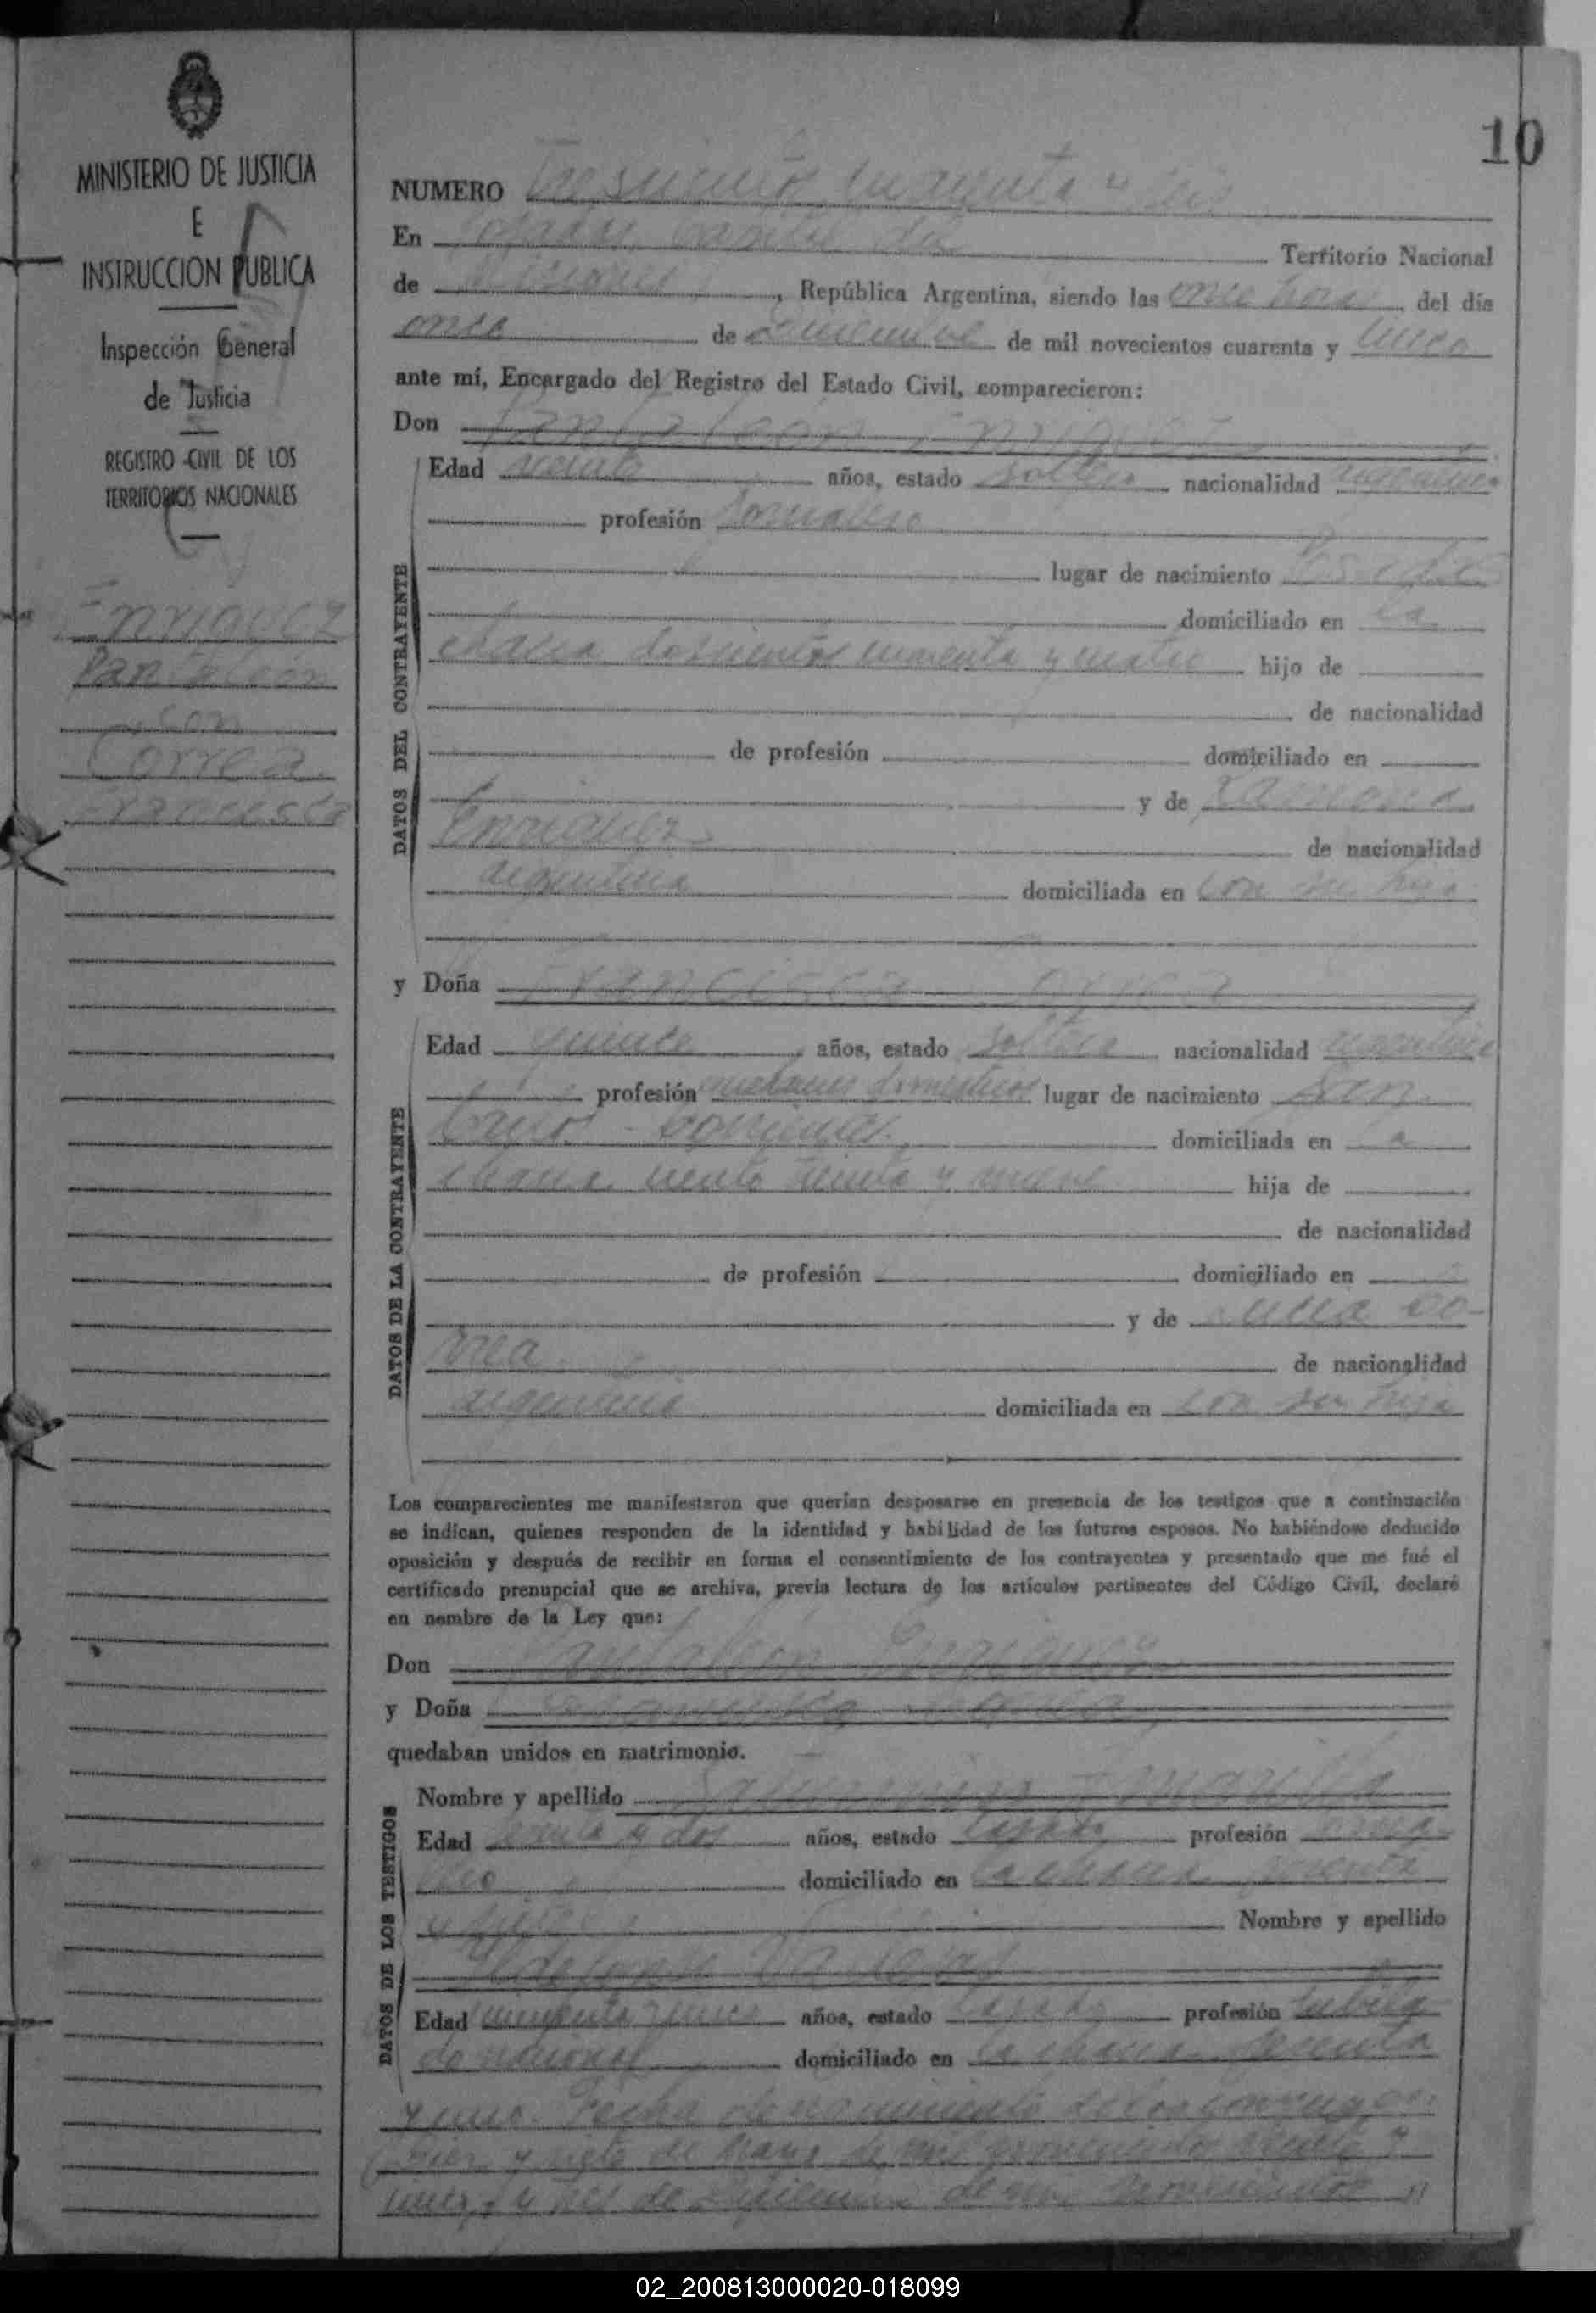 10
MINISTERIO DE JUSTICIA
E
INSTRUCCION PUBLICA
Inspección General
de Justicia
REGISTRO CIVIL DE LOS
TERRITORIOS NACIONALES
Enriquez
Pantaleón
con
Correa
Francisca
NUMERO Trescientos cuarenta y seis
En Posadas Capital del Territorio Nacional
de Misiones, República Argentina, siendo las once horas del día
once de de mil novecientos cuarenta y cinco
ante mí, Encargado del Registro del Estado Civil, comparecieron:
Don Pantaleón Enriquez
DATOS DEL CONTRAYENTE
Edad veinte años, estado soltero nacionalidad argentino
profesión Jornalero
lugar de nacimiento Posadas
domiciliado en la
chacra doscientos cuarenta y cuatro hijo de
de nacionalidad
de profesión domiciliado en
y de Ramona
Enriquez de nacionalidad
argentina domiciliada en con su hijo
y Doña Francisca Correa
DATOS DE LA CONTRAYENTE
Edad quince años, estado soltera nacionalidad argentina
profesión quehaceres domesticos lugar de nacimiento San
Carlos - Corrientes domiciliada en la
chacra ciento treinta y nueve hija de
de nacionalidad
de profesión domiciliado en
y de Co-
rrea de nacionalidad
argentina domiciliada en con su hija
Los comparecientes me manifestaron que querían desposarse en presencia de los testigos que a continuación
se indican, quienes responden de la identidad y habilidad de los futuros esposos. No habiéndose deducido
oposición y después de recibir en forma el consentimiento de los contrayentes y presentado que me fué el
certificado prenupcial que se archiva, previa lectura de los artículos pertinentes del Código Civil, declaré
en nombre de la Ley que:
Don Pantaleón Enriquez
y Doña Francisca Correa
quedaban unidos en matrimonio.
DATOS DE LOS TESTIGOS
Nombre y apellido Saturnino
Edad y dos años, estado casado profesión
domiciliado en la chacra sesenta
y Nombre y apellido
Ildefonso
Edad cincuenta y cinco años, estado casado profesión Jubila
do nacional domiciliado en la chacra sesenta
y uno. Fecha de nacimiento de los conyuges:
diez y siete de Mayo de mil novecientos veinte y
cinco y tres de de mil novecientos
02_200813000020-018099